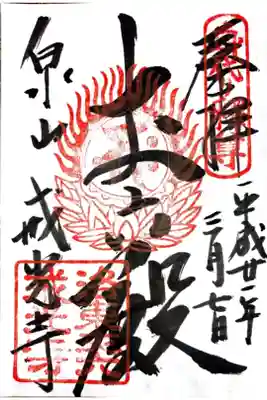 奉拝
平成廿一年
三月七日
丈六殿
泉山 戒光寺